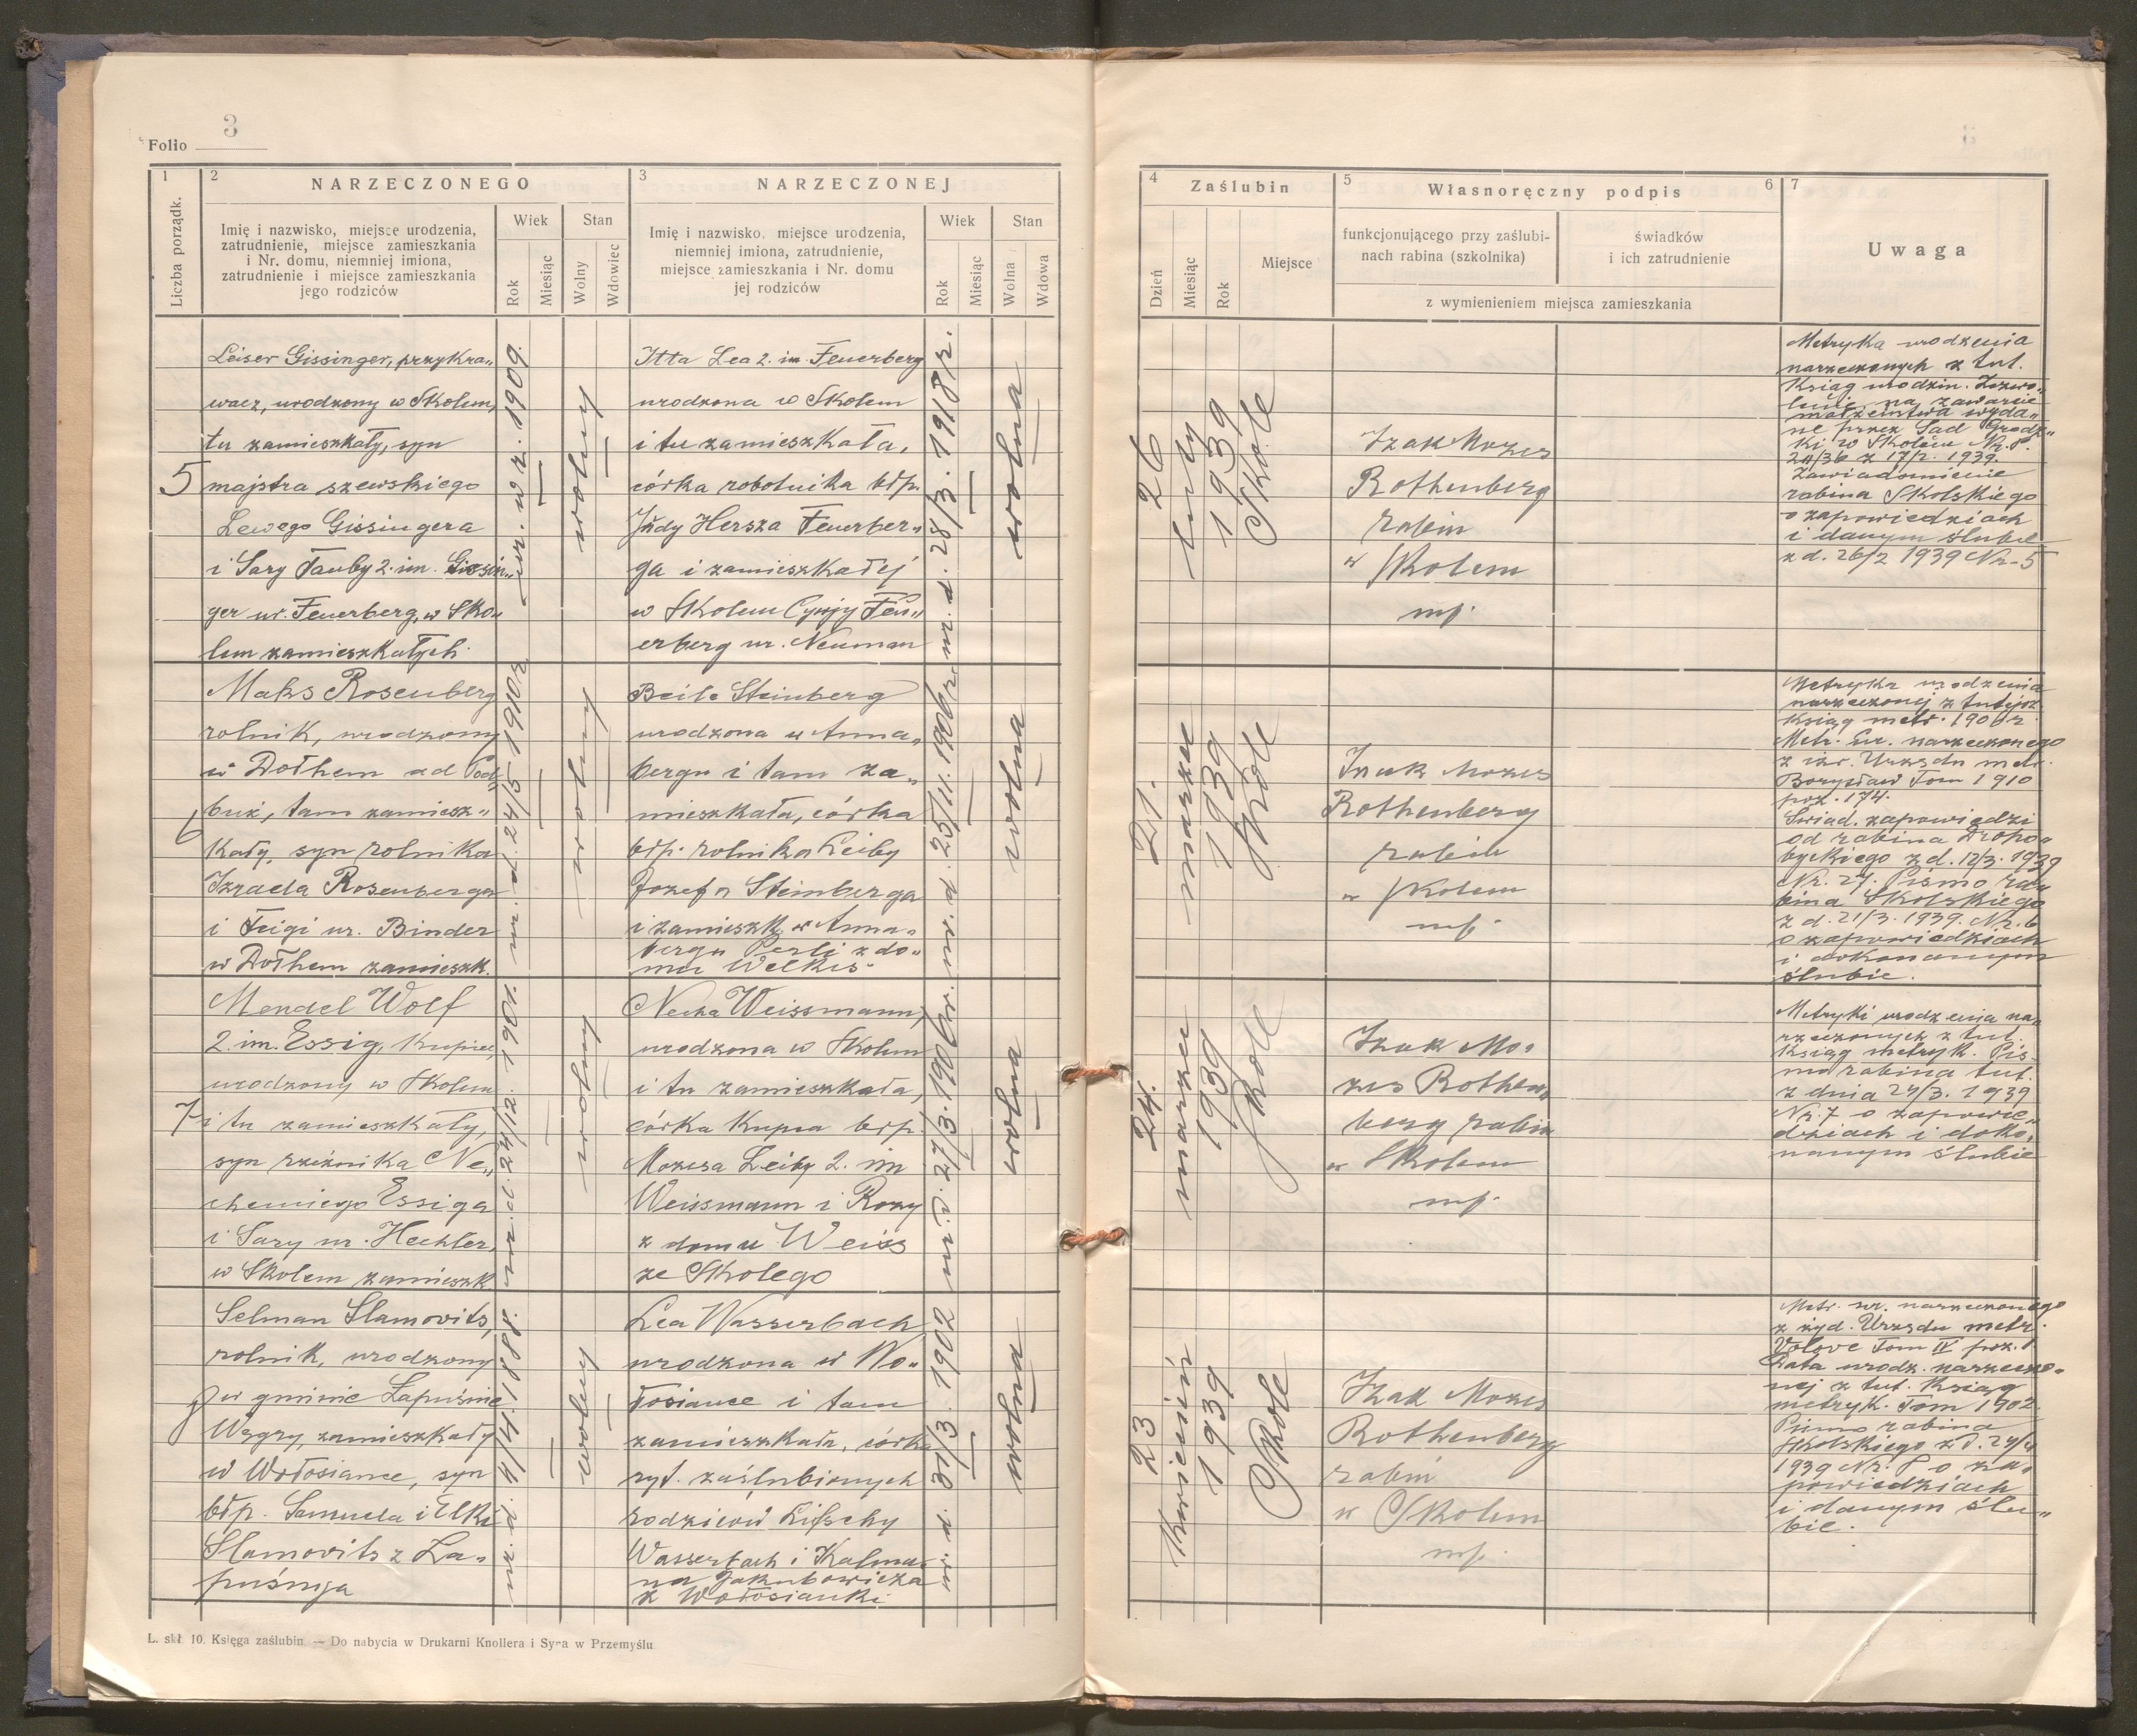 3
Folio
1
2
NARZECZONEGO
3
NARZECZONEJ
Liczba porządk.
Imię i nazwisko, miejsce urodzenia,
zatrudnienie, miejsce zamieszkania
i Nr. domu, niemniej imiona,
zatrudnienie i miejsce zamieszkania
jego rodziców
Wiek
Rok
Miesiąc
Stan
Wolny
Wdowiec
Imię i nazwisko, miejsce urodzenia,
niemniej imiona, zatrudnienie,
miejsce zamieszkania i Nr. domu
jej rodziców
Wiek
Rok
Miesiąc
Stan
Wolna
Wdowa
4
Zaślubin
5
Własnoręczny podpis
6
7
Dzień
Miesiąc
Rok
Miejsce
funkcjonującego przy zaślubi-
nach rabina (szkolnika)
świadków
i ich zatrudnienie
z wymienieniem miejsca zamieszkania
Uwaga
5
Leiser Gissinger, przykra„
wacz, urodzony w Skolem,
tu zamieszkały, syn
majstra szewskiego
Lewego Gissingera
i Sary Tauby 2. im. Gissin„
ger ur. Feuerberg, w Sko„
lem zamieszkałych
ur. w r. 1909.
wolny
Itta Lea 2. im. Feuerberg
urodzona w Skolem
i tu zamieszkała,
córka robotnika błp.
Judy Hersza Feuerber„
ga i zamieszkałej
w Skolem Cywjy Feu„
erberg ur. Neuman
ur. d. 28/3. 1918 r.
wolna
26
luty
1939
Skole
Izak Mozes
Rothenberg
rabin
w Skolem
mp.
Metryka urodzenia
narzeczonych z tut.
Ksiąg urodzin. Zezwo„
lenie na zawarcie
małżeństwa wyda„
ne przez Sąd Grodz„
ki w Skolem Nr. P.
24/36 z 17/2. 1939.
Zawiadomienie
rabina Skolskiego
o zapowiedziach
i danym ślubie
z d. 26/2 1939 Nr. 5
6
Maks Rosenberg
rolnik, urodzony
w Dołhem ad Pod„
buż, tam zamiesz„
kały, syn rolnika
Izraela Rosenberga
i Feigi ur. Binder
w Dołhem zamieszk.
ur. d. 24/5 1910 r.
wolny
Beile Steinberg
urodzona w Anna„
bergu i tam za„
mieszkała, córka
błp. rolnika Leiby
Jozefa Steinberga
i zamieszk. w Anna„
bergu Perli z do„
mu Welkis
ur. d. 25/11. 1906 r.
wolna
21.
marzec
1939
Skole
Izak Mozes
Rothenberg
rabin
w Skolem
mp.
Metryka urodzenia
narzeczonej z tutejsz.
Ksiąg metr. 1906 r.
Metr. ur. narzeczonego
z izr. Urzędu metr.
Borysław Tom 1910
poz. 174.
Świad. zapowiedzi
od rabina Droho„
byckiego z d. 12/3. 1939
Nr. 27. Pismo ra„
bina Skolskiego
z d. 21/3. 1939. Nr. 6
o zapowiedziach
i dokonanym
ślubie.
7
Mendel Wolf
2. im. Essig, kupiec,
urodzony w Skolem
i tu zamieszkały,
syn rzeźnika Ne„
chemiego Essiga
i Sary ur. Hechler,
w Skolem zamieszk
ur. d. 24/12. 1901.
wolny
Necha Weissmann,
urodzona w Skolem
i tu zamieszkała,
córka Kupca błp.
Mozesa Leiby 2. im
Weissmann i Rozy
z domu Weiss
ze Skolego
ur. d. 27/3. 1906 r.
wolna
24.
marzec
1939
Skole
Izak Mo„
zes Rothen„
berg rabin
w Skolem
mp.
Metryki urodzenia na„
rzeczonych z tut.
Ksiąg metryk. Pis„
mo rabina tut.
z dnia 24/3. 1939
Nr. 7 o zapowie„
dziach i doko„
nanym ślubie
8
Selman Slamovits,
rolnik, urodzony
w gminie Łapuśnie
Węgry, zamieszkały
w Wołosiance, syn
błp. Samuela i Elki
Slamovits z Ła„
puśnja
ur. d. 4/4. 1888.
wolny
Lea Wasserbach
urodzona w Wo„
łosiance i tam
zamieszkała, córka
ryt. zaślubionych
rodziców Lifschy
Wasserbach i Kalma„
na Jakubowicza
z Wołosianki
ur. d. 31/3. 1902
wolna
23
Kwiecień
1939
Skole
Izak Mozes
Rothenberg
rabin
w Skolem
mp.
Metr. ur. narzeczonego
z żyd. Urzędu metr.
Volove Tom IV poz. 8.
Data urodz. narzeczo„
nej z tut. Ksiąg
metryk. Tom 1902.
Pismo rabina
Skolskiego z d. 24/4
1939 Nr. 8 o za„
powiedziach
i danym ślu„
bie.
L. skł. 10. Księga zaślubin — Do nabycia w Drukarni Knollera i Syna w Przemyślu